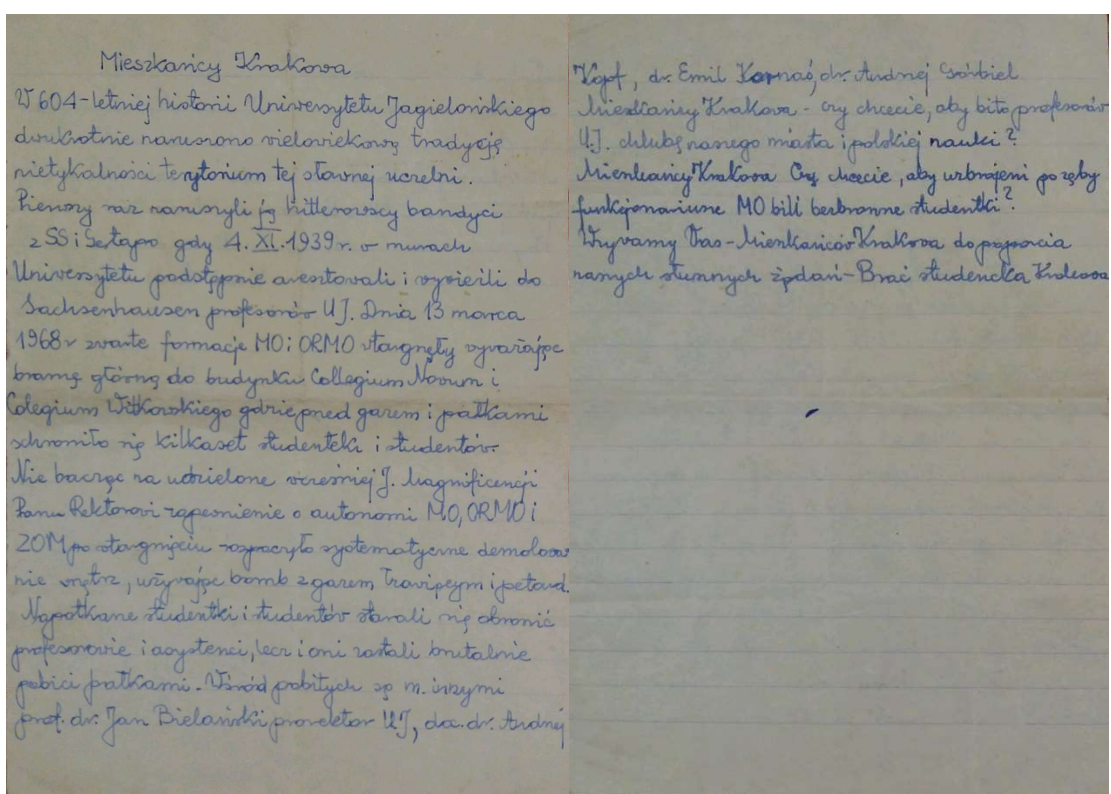 Mieszkańcy Krakowa
W 604-letniej historii Uniwersytetu Jagielońskiego
dwukrotnie naruszono wielowiekową tradycję
nietykalności terytorium tej sławnej uczelni.
Pierwszy raz naruszyli ją hitlerowscy bandyci
z SS i Gestapo gdy 4. XI. 1939 r. w murach
Uniwersytetu podstępnie aresztowali i wywieźli do
Sachsenhausen profesorów UJ. Dnia 13 marca
1968 r zwarte formacje MO i ORMO wtargnęły wyważając
bramę główną do budynku Collegium Novum i
Colegium Witkowskiego gdzie przed gazem i pałkami
schroniło się kilkaset studentek i studentów.
Nie bacząc na udzielone wcześniej J. Magnificencji
Panu Rektorowi zapewnienie o autonomi MO, ORMO i
ZOM po wtargnięciu rozpoczęło systematyczne demolowa
nie wnętrz, używając bomb z gazem łzawiącym i petard.
Napotkane studentki i studentów starali się obronić
profesorowie i asystenci, lecz i oni zostali brutalnie
pobici pałkami. Wśród pobitych są m. innymi
prof. dr. Jan Bielański prorektor UJ, doc. dr. Andrzej
Kopf, dr. Emil Kornaś, dr. Andrzej Górbiel
Mieszkańcy Krakowa - czy chcecie, aby bito profesorów
U.J. chlubę naszego miasta i polskiej nauki?
Mieszkańcy Krakowa Czy chcecie, aby uzbrojeni po zęby
funkcjonariusze MO bili bezbronne studentki?
Wzywamy Was - Mieszkańców Krakowa do poparcia
naszych słusznych żądań - Brać studencka Krakowa